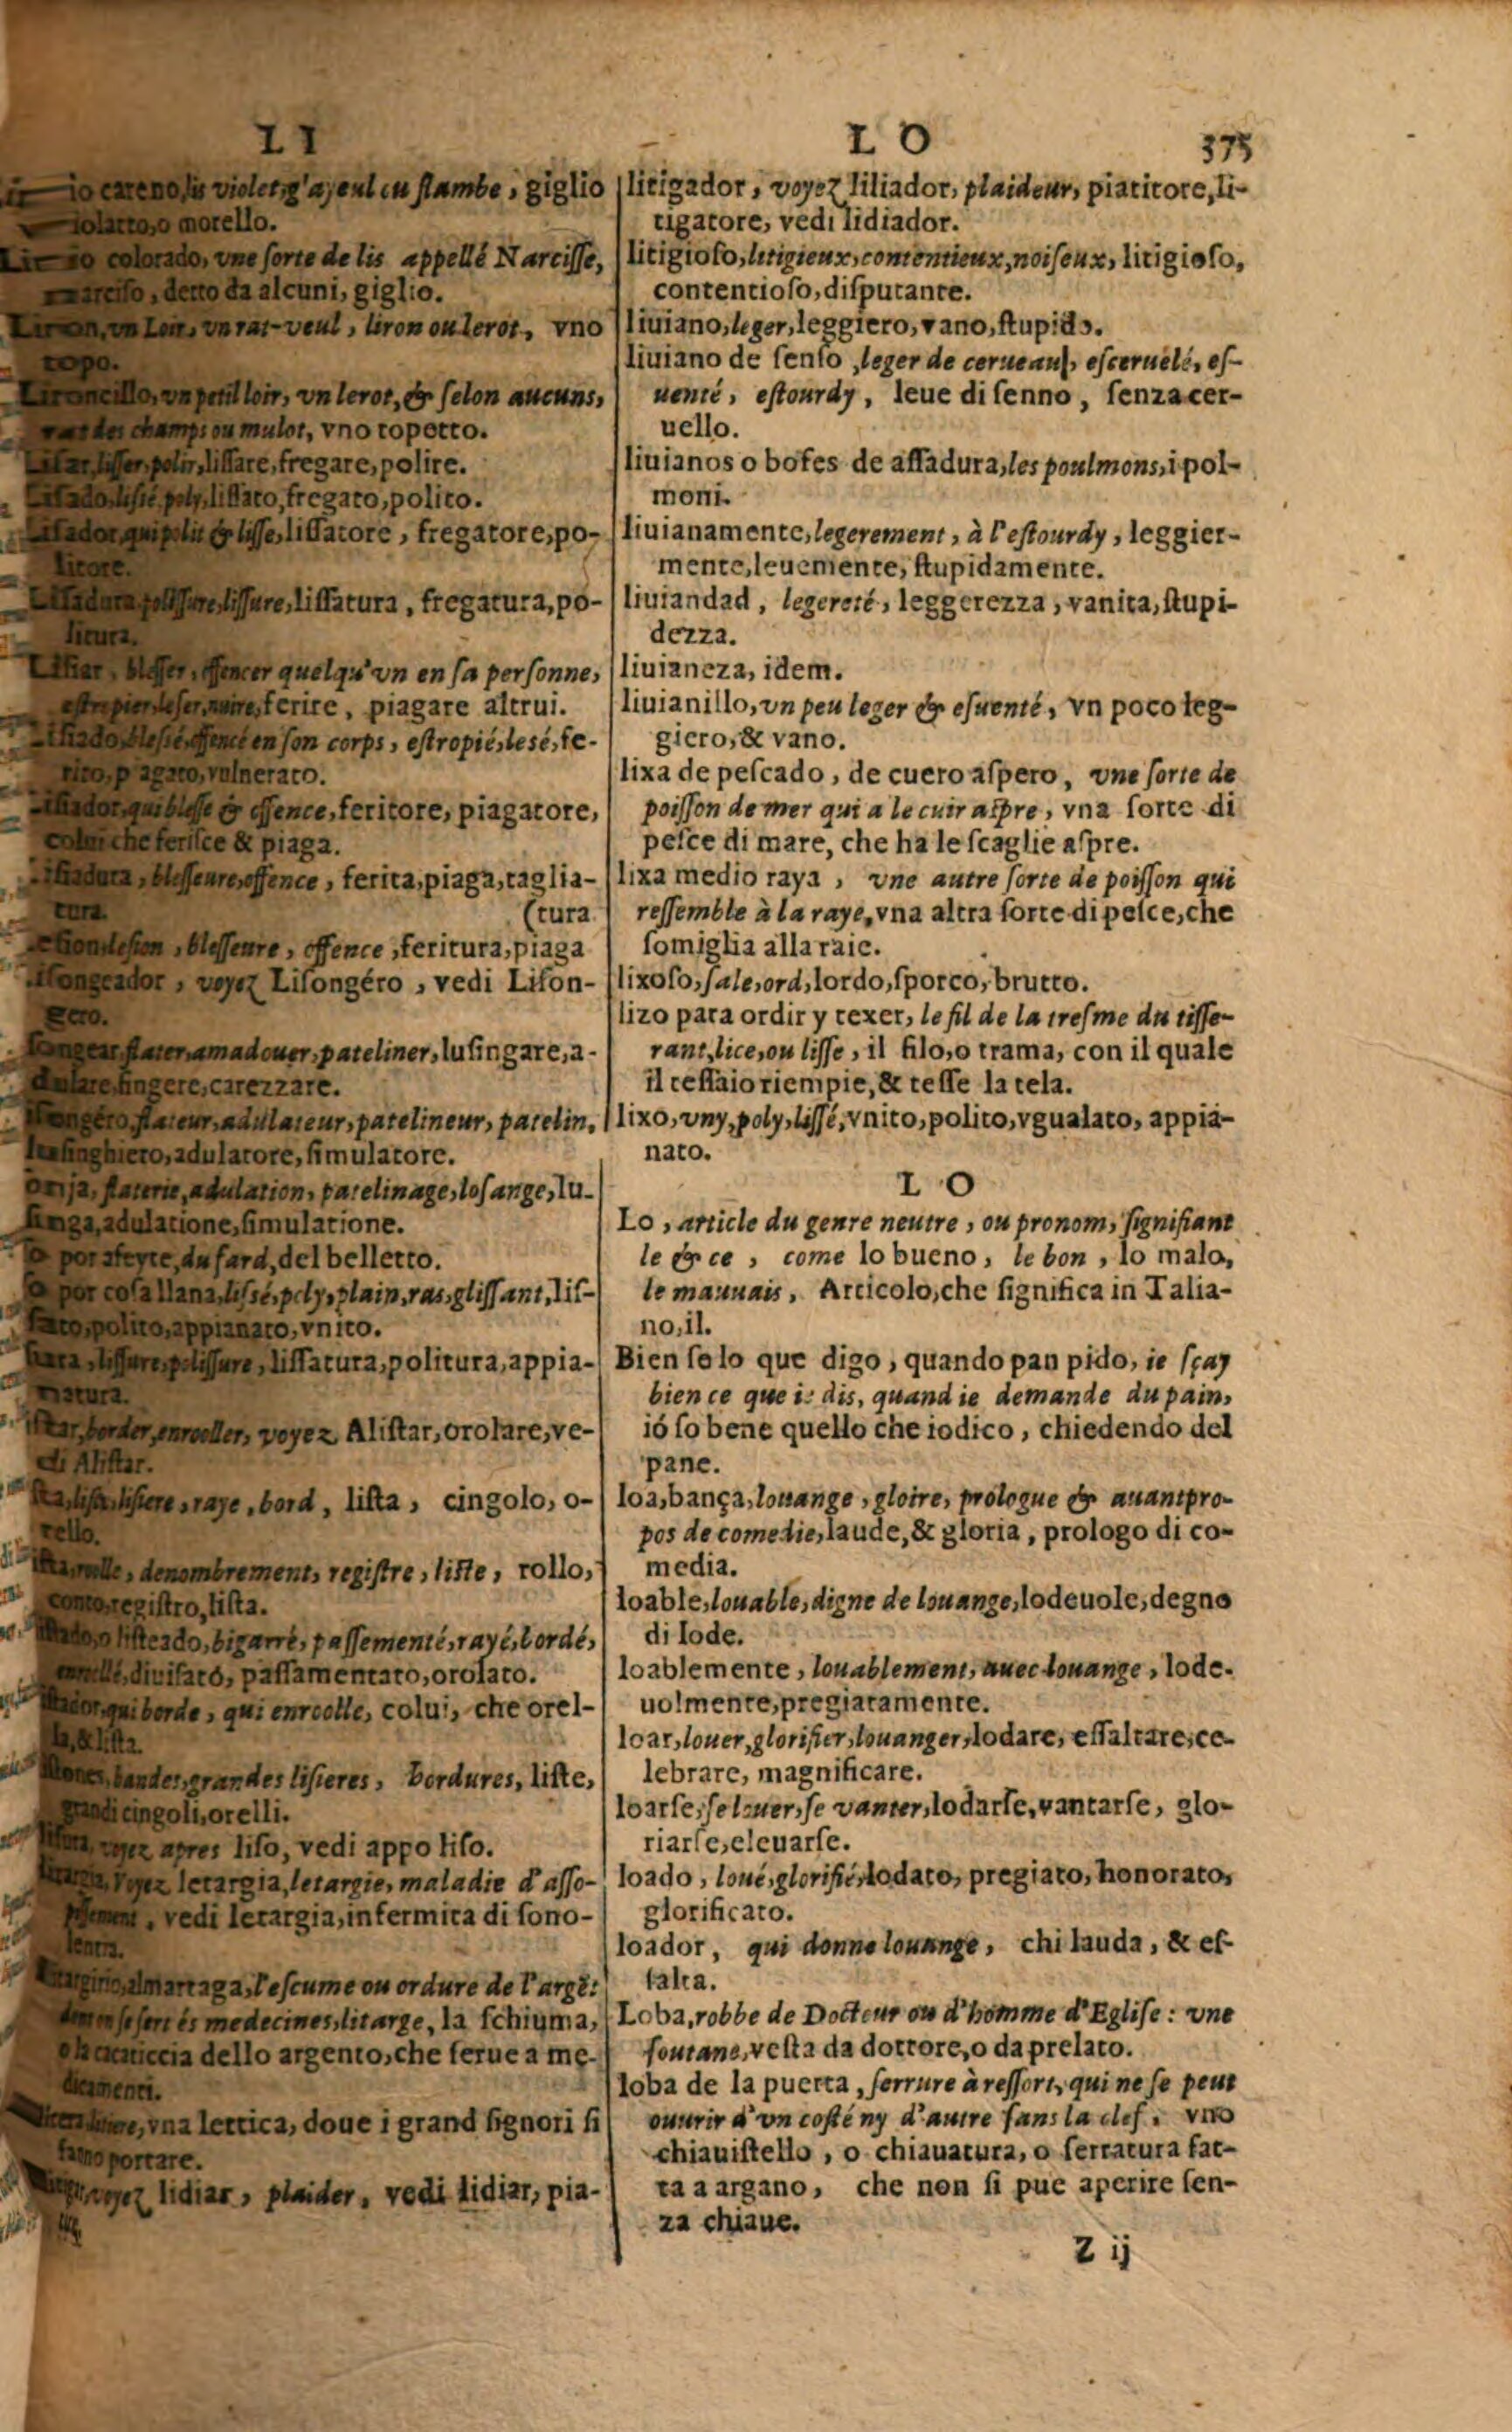 LI
LO
375
io careno, lis violet, g'ajeul ou flambe, giglio
iolatto, o morello.
Lirio colorado, vne ſorte de lis appellé Narciſſe,
narciſo, detto da alcuni, giglio.
Liron, vn Loir, vn rat-veul, liron ou lerot, vno
topo.
Lironcillo, vn petil loir, vn lerot, & ſelon aucuns,
rat des champs ou mulot, vno topotto.
Liſar, liſſer, polir, liſſare, fregare, polire.
Liſado, liſſé, poly, liſſato, fregato, polito.
Liſador, qui polit & liſſe, liſſatore, fregatore, po-
litore.
Liſadura, poliſſure, liſſure, liſſatura, fregatura, po-
litura.
Liſiar, bleſſer, offencer quelqu'vn en ſa perſonne,
eſtropier, leſer, nuire, ferire, piagare altrui.
Liſiado, bleſſé, offencé en ſon corps, eſtropié, lesé, fe-
rito, piagato, vulnerato.
Liſiador, qui bleſſe & offence, feritore, piagatore,
colui che feriſce & piaga.
Liſiadura, bleſſeure, offence, ferita, piaga, taglia-
tura.
(tura
leſion, bleſſeure, offence, feritura, piaga
liſongeador, voyez Liſongéro, vedi Liſon-
gero.
ſongear, flater, amadouer, pateliner, luſingare, a-
dulare, fingere, carezzare.
ſongéro, flateur, adulateur, patelineur, patelin,
luſinghiero, adulatore, ſimulatore.
onja, flaterie, adulation, patelinage, loſange, lu-
ſinga, adulatione, ſimulatione.
o por afeyte, du fard, del belletto.
o por coſa llana, liſsé, poly, plain, ras, gliſſant, liſ-
ſato, polito, appianato, vnito.
ſura, liſſure, poliſſure, liſſatura, politura, appia-
natura.
iſtar, border, enrooller, voyez Aliſtar, orolare, ve-
di Aliſtar.
ſta, liſta, liſiere, raye, bord, liſta, cingolo, o-
rello.
iſta, rolle, denombrement, regiſtre, liſte, rollo,
conto, regiſtro, liſta.
o liſteado, bigarré, paſſementé, rayé, bordé,
diuiſato, paſſamentato, orolato.
qui borde, qui enroolle, colui, che orel-
la, & liſta.
bandes, grandes liſieres, bordures, liſte,
grandi cingoli, orelli.
voyez apres liſo, vedi appo liſo.
Voyez letargia, letargie, maladie d'aſſo-
, vedi letargia, infermita di ſono-
lenta.
almartaga, l'eſcume ou ordure de l'argẽt
dont on ſe ſert és medecines, litarge, la ſchiuma,
dello argento, che ſerue a me-
dicamenti.
vna lettica, doue i grand ſignori ſi
fanno portare.
voyez lidiar, plaider, vedi lidiar, pia-
litigador, voyez liliador, plaideur, piatitore, li-
tigatore, vedi lidiador.
litigioſo, litigieux, contentieux, noiſeux, litigioſo,
contentioſo, diſputante.
liuiano, leger, leggiero, vano, ſtupido.
liuiano de ſenſo, leger de cerueau, eſceruelé, eſ-
uenté, eſtourdy, leue di ſenno, ſenza cer-
uello.
liuianos o bofes de aſſadura, les poulmons, i pol-
moni.
liuianamente, legerement, à l'eſtourdy, leggier-
mente, leuemente, ſtupidamente.
liuiandad, legereté, leggerezza, vanita, ſtupi-
dezza.
liuianeza, idem.
liuianillo, vn peu leger & eſuenté, vn poco leg-
giero, & vano.
lixa de peſcado, de cuero aſpero, vne ſorte de
poiſſon de mer qui a le cuir aſpre, vna ſorte di
peſce di mare, che ha le ſcaglie aſpre.
lixa medio raya, vne autre ſorte de poiſſon qui
reſſemble à la raye, vna altra ſorte di peſce, che
ſomiglia alla raie.
lixoſo, ſale, ord, lordo, ſporco, brutto.
lizo para ordir y texer, le fil de la treſme du tiſſe-
rant, lice, ou liſſe, il filo, o trama, con il quale
il teſſaio riempie, & teſſe la tela.
lixo, vny, poly, liſſé, vnito, polito, vgualato, appia-
nato.
LO
Lo, article du genre neutre, ou pronom, ſignifiant
le & ce, come lo bueno, le bon, lo malo,
le mauuais, Articolo, che ſignifica in Talia-
no, il.
Bien ſe lo que digo, quando pan pido, ie ſçay
bien ce que ie dis, quand ie demande du pain,
ió ſo bene quello che io dico, chiedendo del
pane.
loa, bança, louange, gloire, prologue & auantpro-
pos de comedie, laude, & gloria, prologo di co-
media.
loable, louable, digne de louange, lodeuole, degno
di lode.
loablemente, louablement, auec louange, lode-
uolmente, pregiatamente.
loar, louer, glorifier, louanger, lodare, eſſaltare, ce-
lebrare, magnificare.
loarſe, ſe louer, ſe vanter, lodarſe, vantarſe, glo-
riarſe, eleuarſe.
loado, loué, glorifié, lodato, pregiato, honorato,
glorificato.
loador, qui donne louange, chi lauda, & eſ-
ſalta.
Loba, robbe de Docteur ou d'homme d'Egliſe: vne
ſoutane, veſta da dottore, o da prelato.
loba de la puerta, ſerrure à reſſort, qui ne ſe peut
ouurir d'vn coſté ny d'autre ſans la clef, vno
chiauiſtello, o chiauatura, o ſerratura fat-
ta a argano, che non ſi pue aperire ſen-
za chiaue.
Z ij